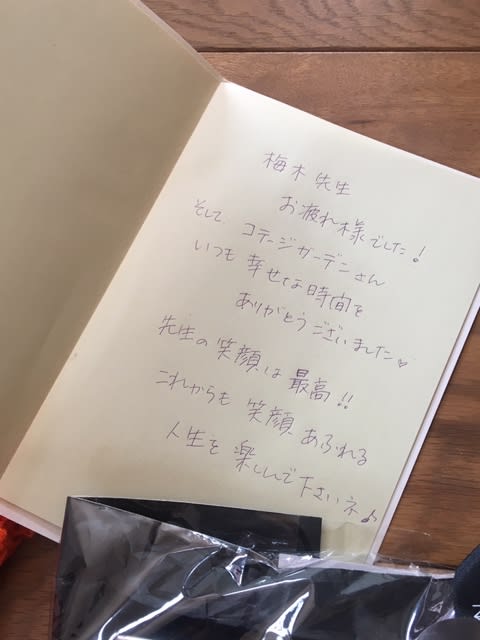 梅木先生
お疲れ様でした!
そして コテージガーデンさん
いつも 幸せな時間を
ありがとうございました♡
先生の笑顔は 最高!!
これからも 笑顔 あふれる
人生を 楽しんで下さいネ♪